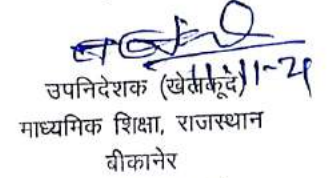 11-11-21
उपनिदेशक (खेलकूद)
माध्यमिक शिक्षा, राजस्थान
बीकानेर